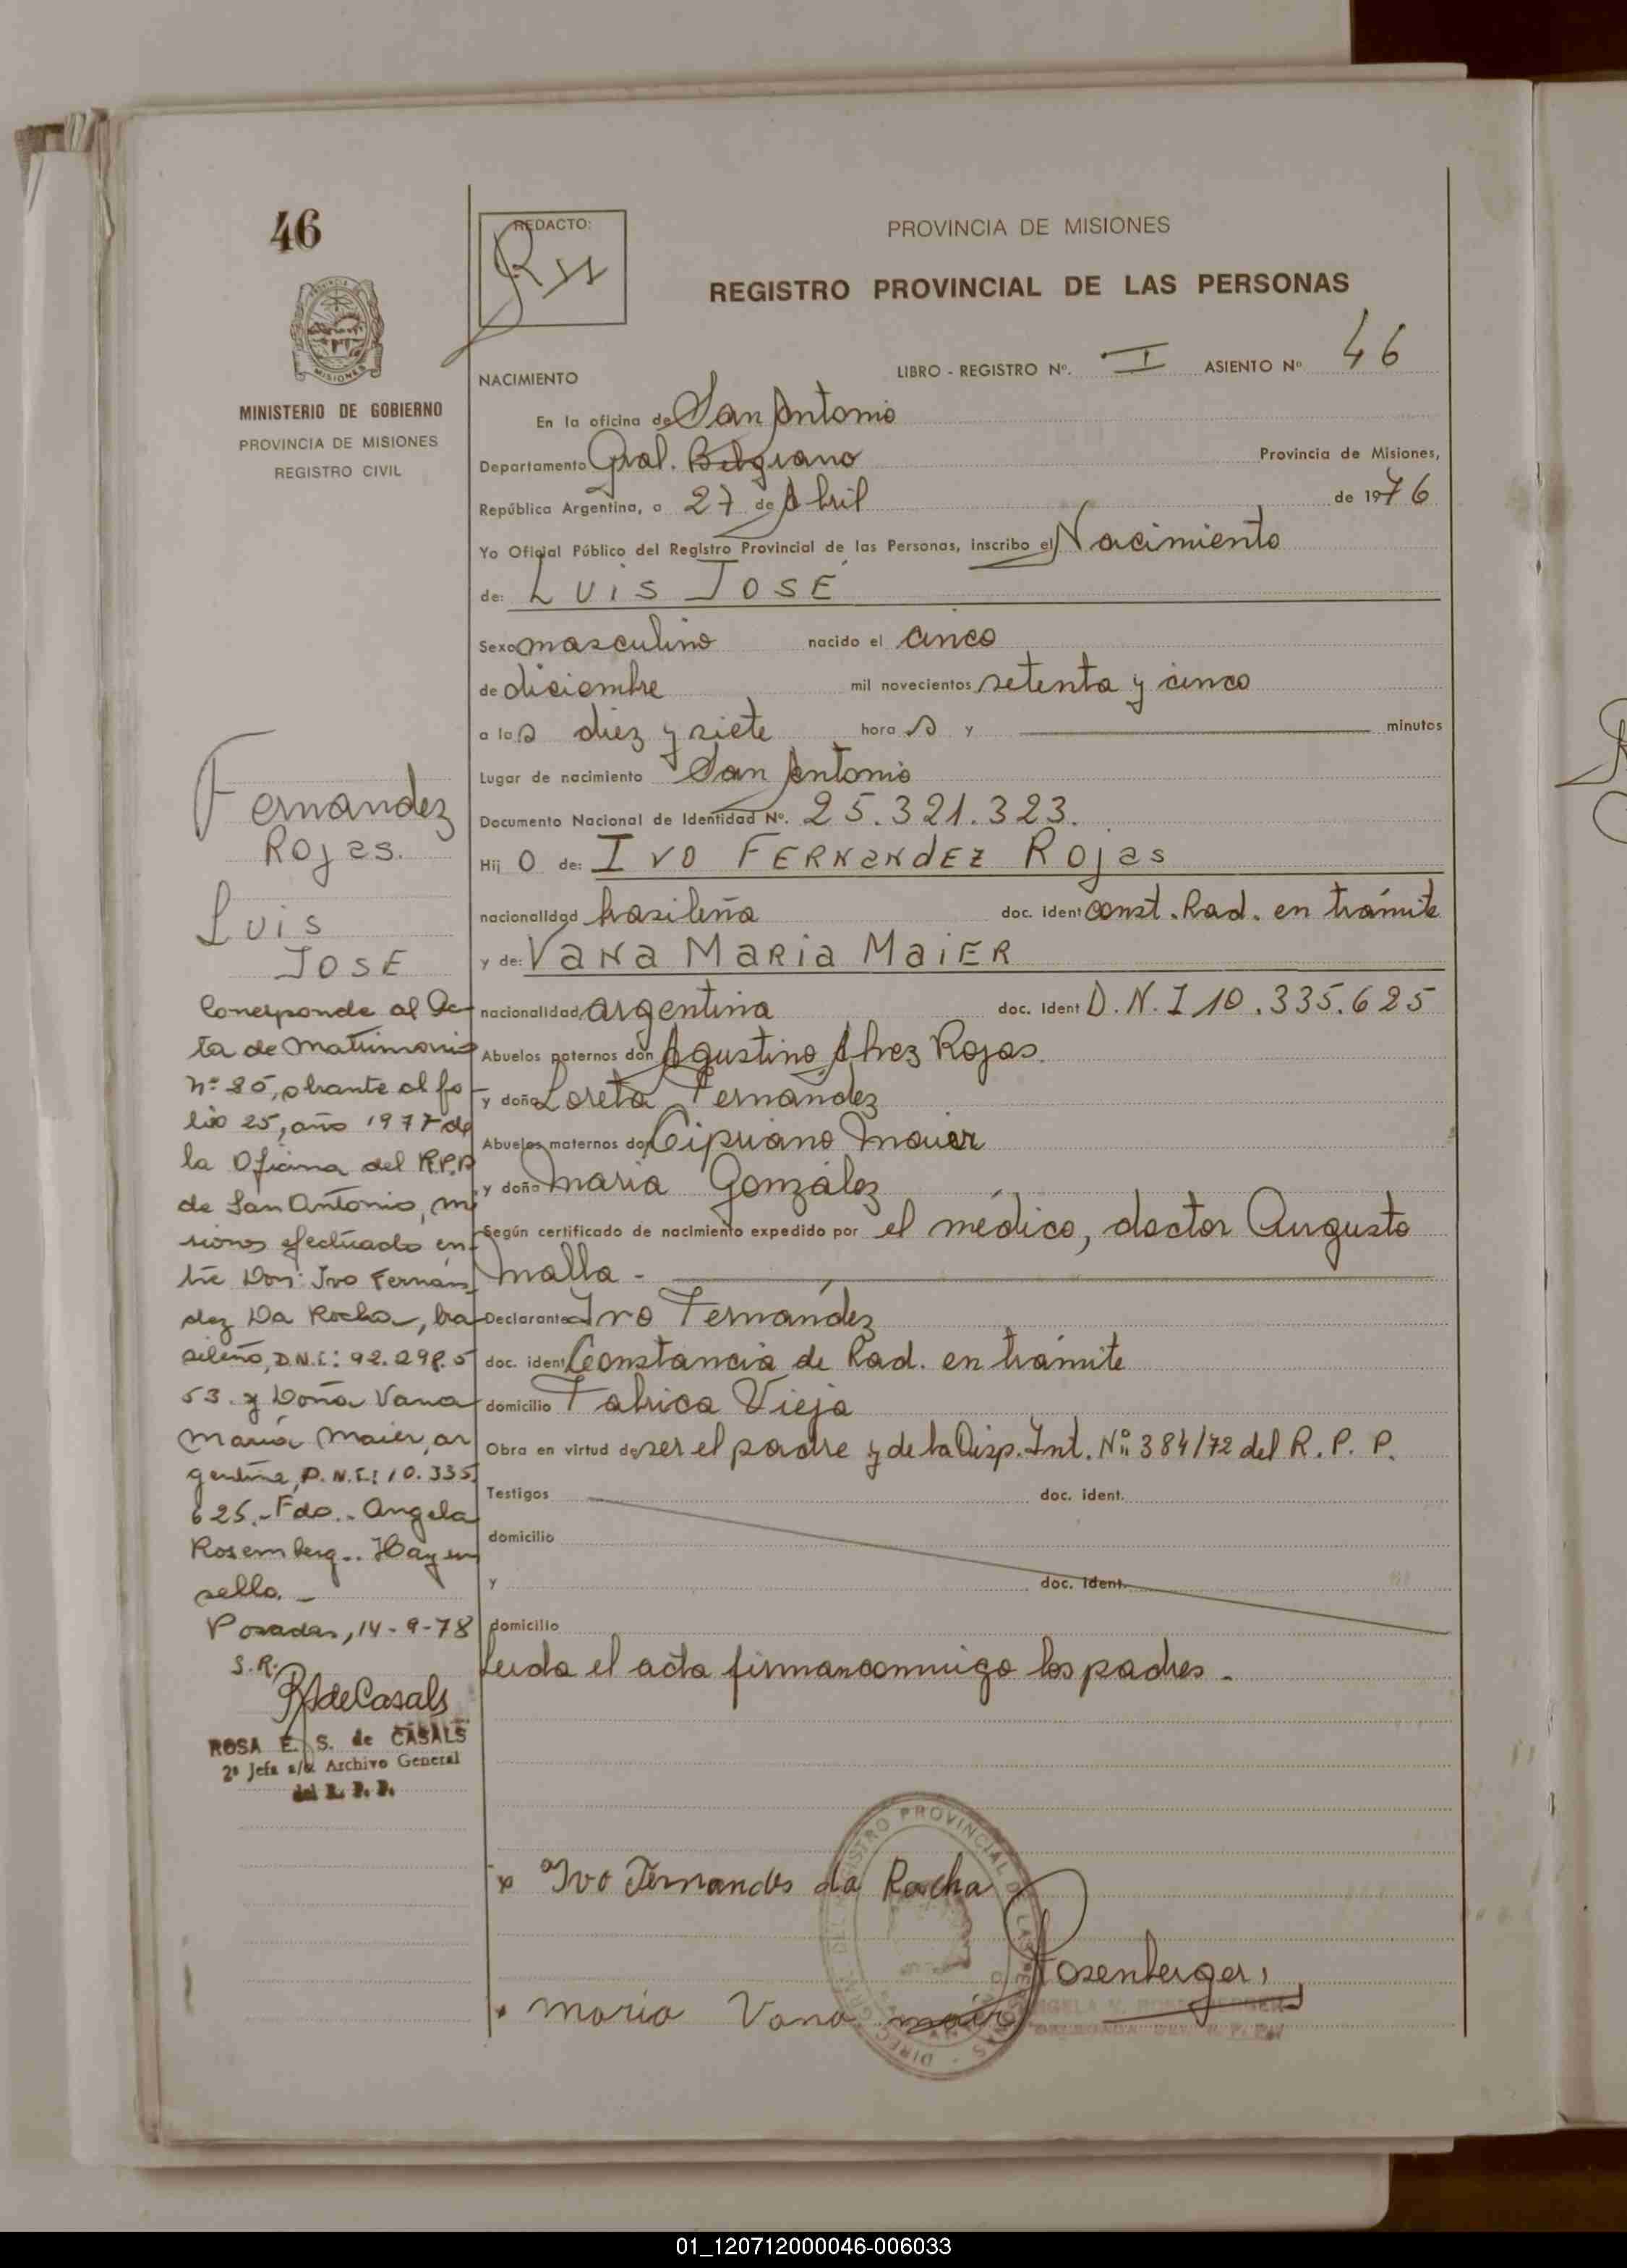 46
REDACTO:
PROVINCIA DE MISIONES
REGISTRO PROVINCIAL DE LAS PERSONAS
MISIONES
MINISTERIO DE GOBIERNO
PROVINCIA DE MISIONES
REGISTRO CIVIL
NACIMIENTO
LIBRO - REGISTRO Nº. I ASIENTO Nº 46
En la oficina de San Antonio
Departamento Gral. Belgrano Provincia de Misiones,
República Argentina, a 27 de Abril de 1976
Yo Oficial Público del Registro Provincial de las Personas, inscribo el Nacimiento
de: LUIS JOSÉ
Sexo masculino nacido el cinco
de diciembre mil novecientos setenta y cinco
a las diez y siete hora s y minutos
Lugar de nacimiento San Antonio
Documento Nacional de Identidad Nº. 25.321.323.
Hij O de: IVO FERNANDEZ ROjas
nacionalidad brasileña doc. ident const. Rad. en trámite
y de: VaNa MaRia MaiER
nacionalidad argentina doc. ident D.N.I 10.335.625
Abuelos paternos don Agustino Rojas.
y doña Loreta Fernández
Abuelos maternos don Cipriano Maier
y doña Maria González
Según certificado de nacimiento expedido por el médico, doctor Augusto
Malla -
Declarante Ivo Fernández
doc. ident Constancia de Rad. en trámite
domicilio Fabrica Vieja
Obra en virtud de ser el padre y de la Disp. Int. Nº 384/72 del R. P. P.
Testigos doc. ident.
domicilio
y doc. ident.
domicilio
Leida el acta firman conmigo los padres -
Fernandez
Rojas.
Luis
JOSE
Corresponde al Ac-
ta de Matrimonio
Nº 80, obrante al fo-
lio 25, año 1977 de
la Oficina del R.P.P
de San Antonio, Mi
siones efectuado en-
tre Don: Ivo Fernán-
dez Da Rocha, bra-
sileño, D.N.I: 92.298.5
53. y Doña Vana
María Maier, ar
gentina, D.N.I: 10.335.
625.- Fdo.. Angela
Rosemberg.. Hay un
sello. -
Posadas, 14-9-78
S.R.
RSdeCasals
ROSA E. S. de CASALS
2ª Jefa a/c Archivo General
del R. P. P.
x Ivo Fernandes da Rocha
Rosenberger
Maria Vana Maier
ANGELA V. ROSENBERGER
DELEGADA DEL R. P. P.
01_120712000046-006033